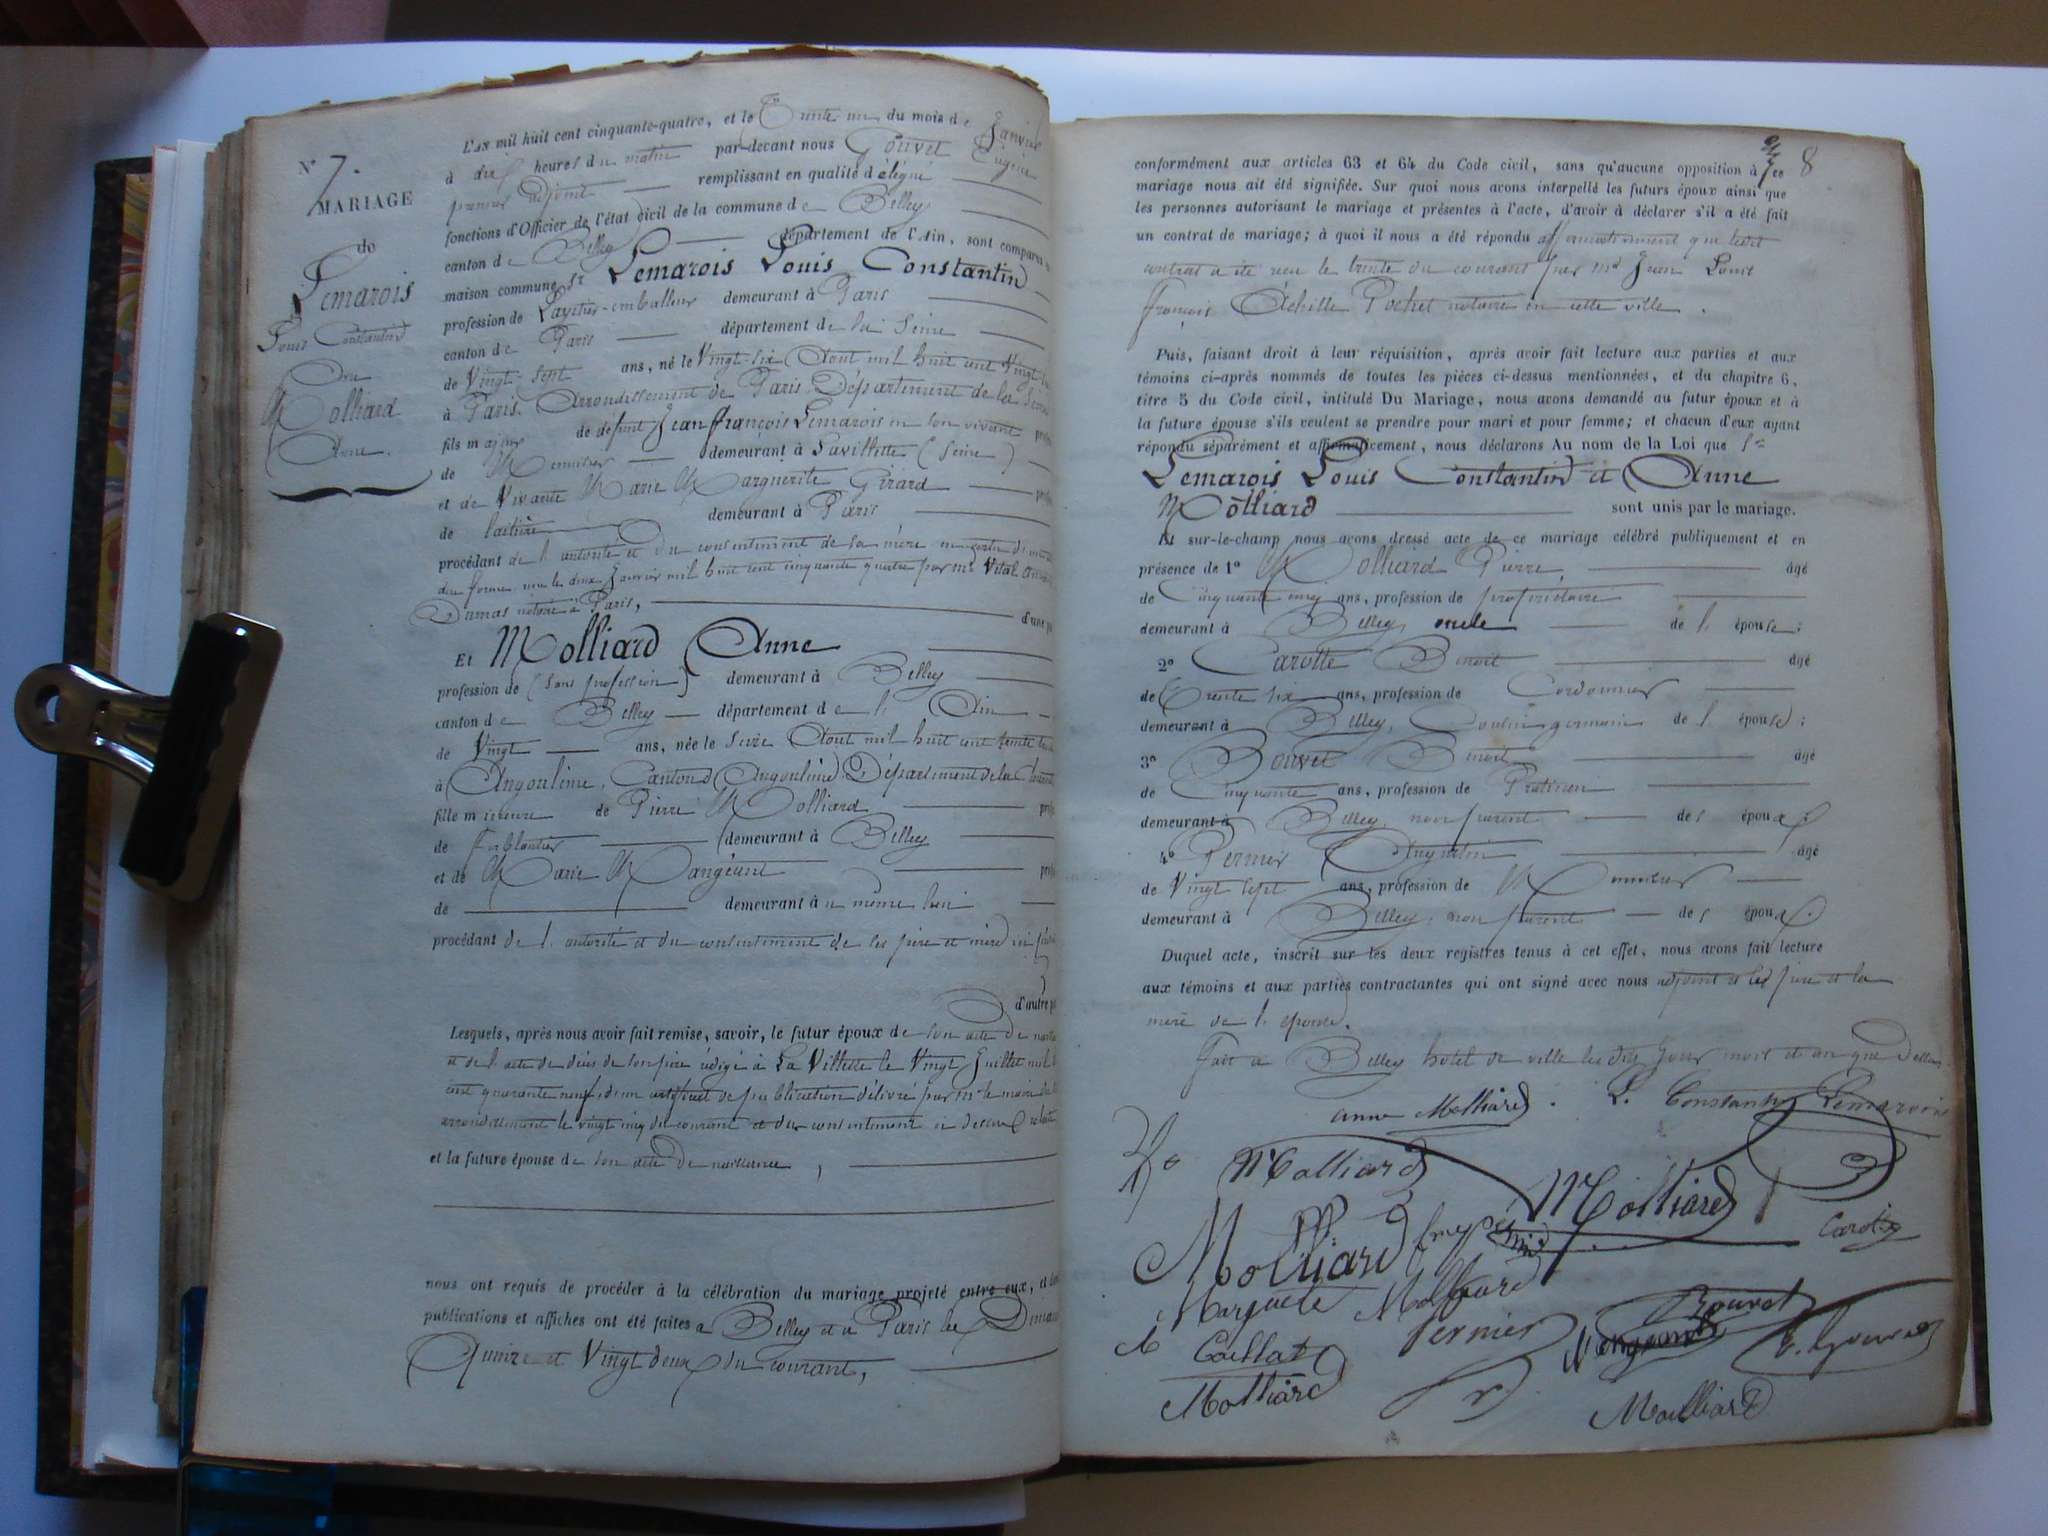 N° 7.
MARIAGE
de
Lemarois
Louis Constantin
Et
Molliard
Anne.
L'an mil huit cent cinquante-quatre, et le Trente un du mois de Janvier
à dix heures du matin par devant nous Gouvet Eugène
premier adjoint remplissant en qualité délégué
fonctions d'Officier de l'état civil de la commune de Belley
canton de Belley département de l'Ain, sont comparus
maison commune Sr Lemarois Louis Constantin
profession de Layetier-emballeur demeurant à Paris
canton de Paris département de la Seine
de Vingt-sept ans, né le Vingt-six Aout mil huit cent vingt
à Paris. Arrondissement de Paris. Département de la Seine
fils majeur de défunt Jean françois Lemarois en son vivant
de Menuisier demeurant à Lavillette (Seine)
et de Vivante Marie Marguerite Girard
de laitière demeurant à Paris
procédant de l'autorité et du consentement de sa mère
due forme reçu le deux Janvier mil huit cent cinquante quatre par Me Vital
Dumas notaire à Paris, d'une
Et Molliard Anne
profession de (sans profession) demeurant à Belley
canton de Belley département de l'Ain
de Vingt ans, née le seize Aout mil huit cent trente
à Angoulème, Canton d'Angoulème Département de la
fille mineure de Pierre Molliard
de Ferblantier demeurant à Belley
et de Marie Mangeant
de demeurant au même lieu
procédant de l'autorité et du consentement de ses père et mère ici
d'autre
Lesquels, après nous avoir fait remise, savoir, le futur époux de son acte de
et de l'acte de décès de son père rédigé à La Villette le Vingt Juillet mil
cent quarante neuf, d'un certificat de publication délivré par Mr le maire du
arrondissement le vingt cinq du courant et du consentement ci dessus relaté
et la future épouse de son acte de naissance,
nous ont requis de procéder à la célébration du mariage projeté entre eux, et
publications et affiches ont été faites à Belley et à Paris les
Quinze et Vingt deux du courant,
8
conformément aux articles 63 et 64 du Code civil, sans qu'aucune opposition à ce
mariage nous ait été signifiée. Sur quoi nous avons interpellé les futurs époux ainsi que
les personnes autorisant le mariage et présentes à l'acte, d'avoir à déclarer s'il a été fait
un contrat de mariage; à quoi il nous a été répondu affirmativement que ledit
contrat a été reçu le trente du courant par Me Jean Louis
françois Achille Pochet notaire en cette ville.
Puis, faisant droit à leur réquisition, après avoir fait lecture aux parties et aux
témoins ci-après nommés de toutes les pièces ci-dessus mentionnées, et du chapitre 6,
titre 5 du Code civil, intitulé Du Mariage, nous avons demandé au futur époux et à
la future épouse s'ils veulent se prendre pour mari et pour femme; et chacun d'eux ayant
répondu séparément et affirmativement, nous déclarons Au nom de la Loi que Sr
Lemarois Louis Constantin et Anne
Molliard sont unis par le mariage.
Et sur-le-champ nous avons dressé acte de ce mariage célébré publiquement et en
présence de 1° Molliard Pierre âgé
de Cinquante cinq ans, profession de propriétaire
demeurant à Belley, oncle de l'épouse;
2° Carotte Benoit âgé
de Trente six ans, profession de Cordonnier
demeurant à Belley, Cousin germain de l'épouse;
3° Bouvet Benoit âgé
de Cinquante ans, profession de Praticien
demeurant à Belley, non parent des époux;
4° Pernier Augustin âgé
de Vingt sept ans, profession de Menuisier
demeurant à Belley, non parent des époux.
Duquel acte, inscrit sur les deux registres tenus à cet effet, nous avons fait lecture
aux témoins et aux parties contractantes qui ont signé avec nous adjoint et les père et la
mère de l'épouse.
Fait à Belley hotel de ville les dits Jour mois et an que dessus
anne Molliard. L. Constantin Lemarois
Molliard
Molliard
Carotte
Molliard
Marguerite Molliard
Bouvet
Caillat
Pernier
E. Gouvet
Molliard
Molliard